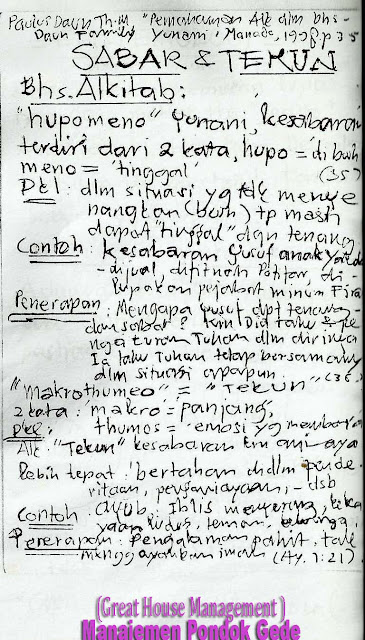 Paulus Daun Th.M "Pemahaman Alk dlm bhs-
Daun Family Yunani, Manado, 1998, p 35
SABAR & TEKUN
Bhs. Alkitab:
"hupomeno" Yunani, kesabaran
terdiri dari 2 kata, hupo = di bawah
meno = "tinggal" (35)
Pkl: dlm situasi yg tdk menye
nangkan (buruh) tp masih
dapat "tinggal" dgn tenang
Contoh: kesabaran Yusuf anak
- dijual, difitnah Potifar, di-
lupakan pejabat minum Fira
Penerapan: Mengapa Yusuf dpt tenang
dan sabar? Krn Dia tahu
Tuhan dlm dirinya
Ia tahu Tuhan tetap bersamanya
dlm situasi apapun. (36)
"makrothumeo" = "TEKUN"
2 kata: makro = panjang,
thumos = emosi yg membara
Alk: "Tekun" kesabaran krn aniaya
lebih tepat: bertahan di dlm pende-
ritaan, penganiayaan, - dsb
Contoh: ayub: Iblis menyerang, keka
yaan ludes, teman, keluarga,
Penerapan: Pengalaman pahit, tak
menggoyahkan iman (Ay. 1:21).
(Great House Management )
Manajemen Pondok Gede